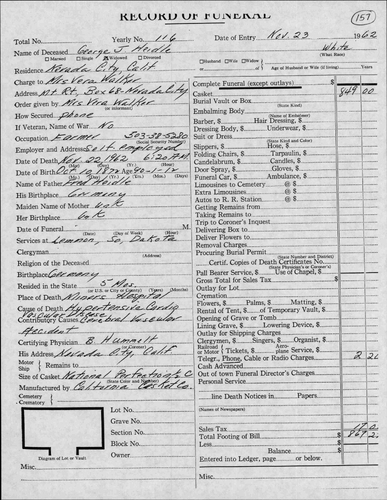 RECORD OF FUNERAL
157
Total No. Yearly No. 116 Date of Entry Nov. 23 1962
Name of Deceased George J. Heidle White
(What Race)
Married Single Widowed Divorced Husband Wife Widow Age of Husband or Wife (if living)
Residence Nevada City, Calif.
Charge to Mrs Vera Walker
Address Rt. Box 68-Nevada City
Order given by Mrs Vira Walker
How Secured phone
If Veteran, Name of War No
Occupation Farmer 503-38-5280
(Social Security Number)
Employer and Address Self employed
Date of Death Nov. 22, 1962 6:20 AM
Date of Birth Oct 10, 1872 Age 90-1-12
Name of Father Fred Heidle
His Birthplace Germany
Maiden Name of Mother unk
Her Birthplace unk
Date of Funeral M.
Services at Lemmon, So, Dakota
Clergyman
Religion of the Deceased
Birthplace Germany
Resided in the State 5 Mos.
Place of Death Miners Hospital
Cause of Death Hypertensive Cardio
Vascular Disease
Contributory Causes Cerebral Vascular
Accident
Certifying Physician B. Hummelt
His Address Nevada City, Calif.
Motor
Ship Remains to
Size of Casket National
Manufactured by California Casket Co.
Cemetery
Crematory
Lot No.
Grave No.
Section No.
Block No.
Owner
Diagram of Lot or Vault
Misc.
Complete Funeral (except outlays) $
Casket 849 00
Burial Vault or Box
(State Kind)
Embalming Body
(Name of Embalmer)
Barber, $ Hair Dressing, $
Dressing Body, $ Underwear, $
Suit or Dress
(State Kind and Color)
Slippers, $ Hose, $
Folding Chairs, $ Tarpaulin, $
Candelabrum, $ Candles, $
Door Spray, $ Gloves, $
Funeral Car, $ Ambulance, $
Limousines to Cemetery @ $
Extra Limousines @ $
Autos to R. R. Station @ $
Getting Remains from
Taking Remains to
Trip to Coroner's Inquest
Delivering Box to
Deliver Flowers to
Removal Charges
Procuring Burial Permit
(State Number and District)
Certif. Copies of Death Certificates No.
(State Physician's or Coroner's)
Pall Bearer Service, $ Use of Chapel, $
Gross Total for Sales Tax $
Outlay for Lot
Cremation
Flowers, $ Palms, $ Matting, $
Rental of Tent, $ of Temporary Vault, $
Opening of Grave or Tomb
Lining Grave, $ Lowering Device, $
Outlay for Shipping Charges
Clergymen, $ Singers, $ Organist, $
Railroad
or Motor Tickets, $ Aero-
plane Service, $
Telegr., Phone, Cable or Radio Charges
Cash Advanced
Out of town Funeral Director's Charges
Personal Service
line Death Notices in Papers.
(Names of Newspapers)
Sales Tax $
Total Footing of Bill $
Less, $
Balance $
Entered into Ledger, page or below.
Misc.